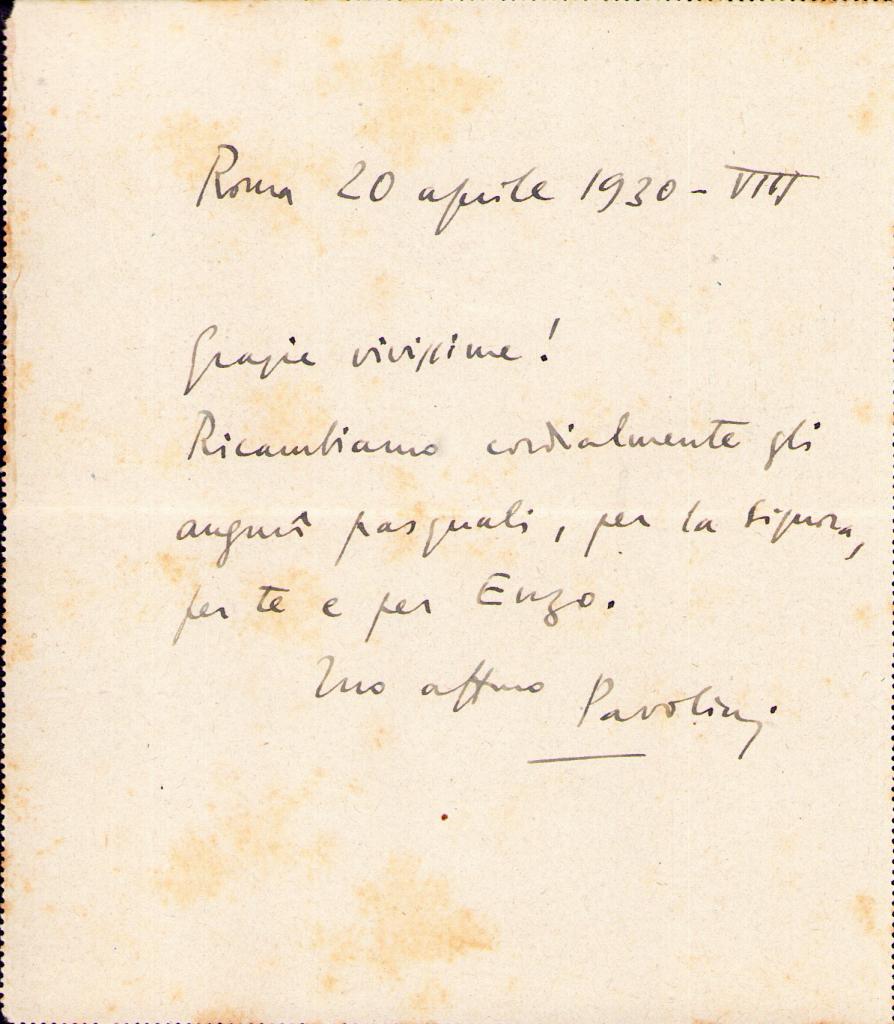 Roma 20 aprile 1930 - VIII
Grazie vivissime!
Ricambiamo cordialmente gli
augurî pasquali, per la signora,
per te e per Enzo.
Tuo affmo Pavolini